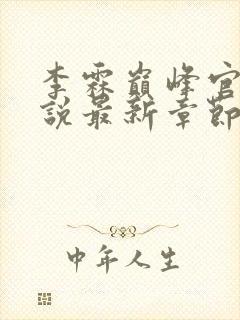 李霖巔峰官
說最新章節
中年人生